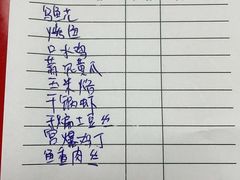 烧肉
口水鸡
蒜泥黄瓜
玉米烙
干锅虾
干煸土豆丝
宫爆鸡丁
鱼香肉丝